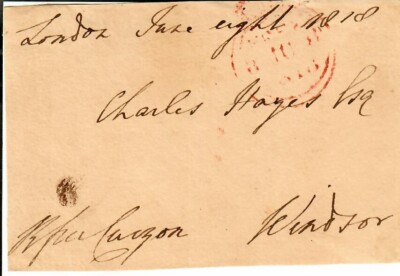 London June eight 1818
Charles Hayes Esq
Windsor
Curzon